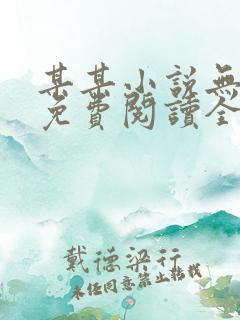 某某小说無
免費閱讀全
戴德梁行
未经同意禁止转载